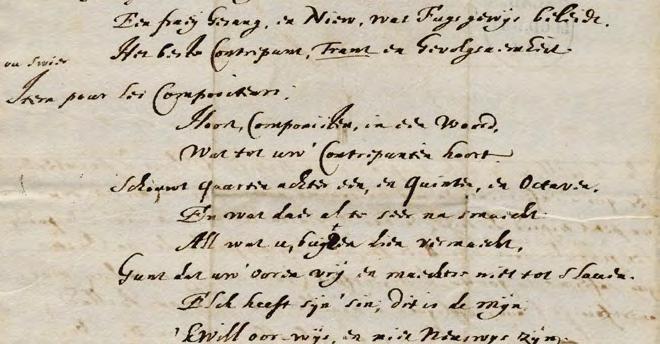 Een fraeij Gesang, en Niew, wat Fugsgewijs beleidt.
Het beste Contrepunt, Trant en Gevolgsaemheit
ou swier
Item pour les Compositeurs.
Hoort, Componisten, in een Woord,
Wat tot uw' Contrepunten hoort
Schouwt quarten achter een, en Quinten, en Octaven.
En wat daer al te seer na smaeckt
All wat u, buyten dien vermaeckt,
Gunt dat uw' ooren vrij en maecktse niet tot slaven.
Elck heeft sijn' sin, dit is de mijn
'KWill oor-wijs, en niet Neuswijs zijn.